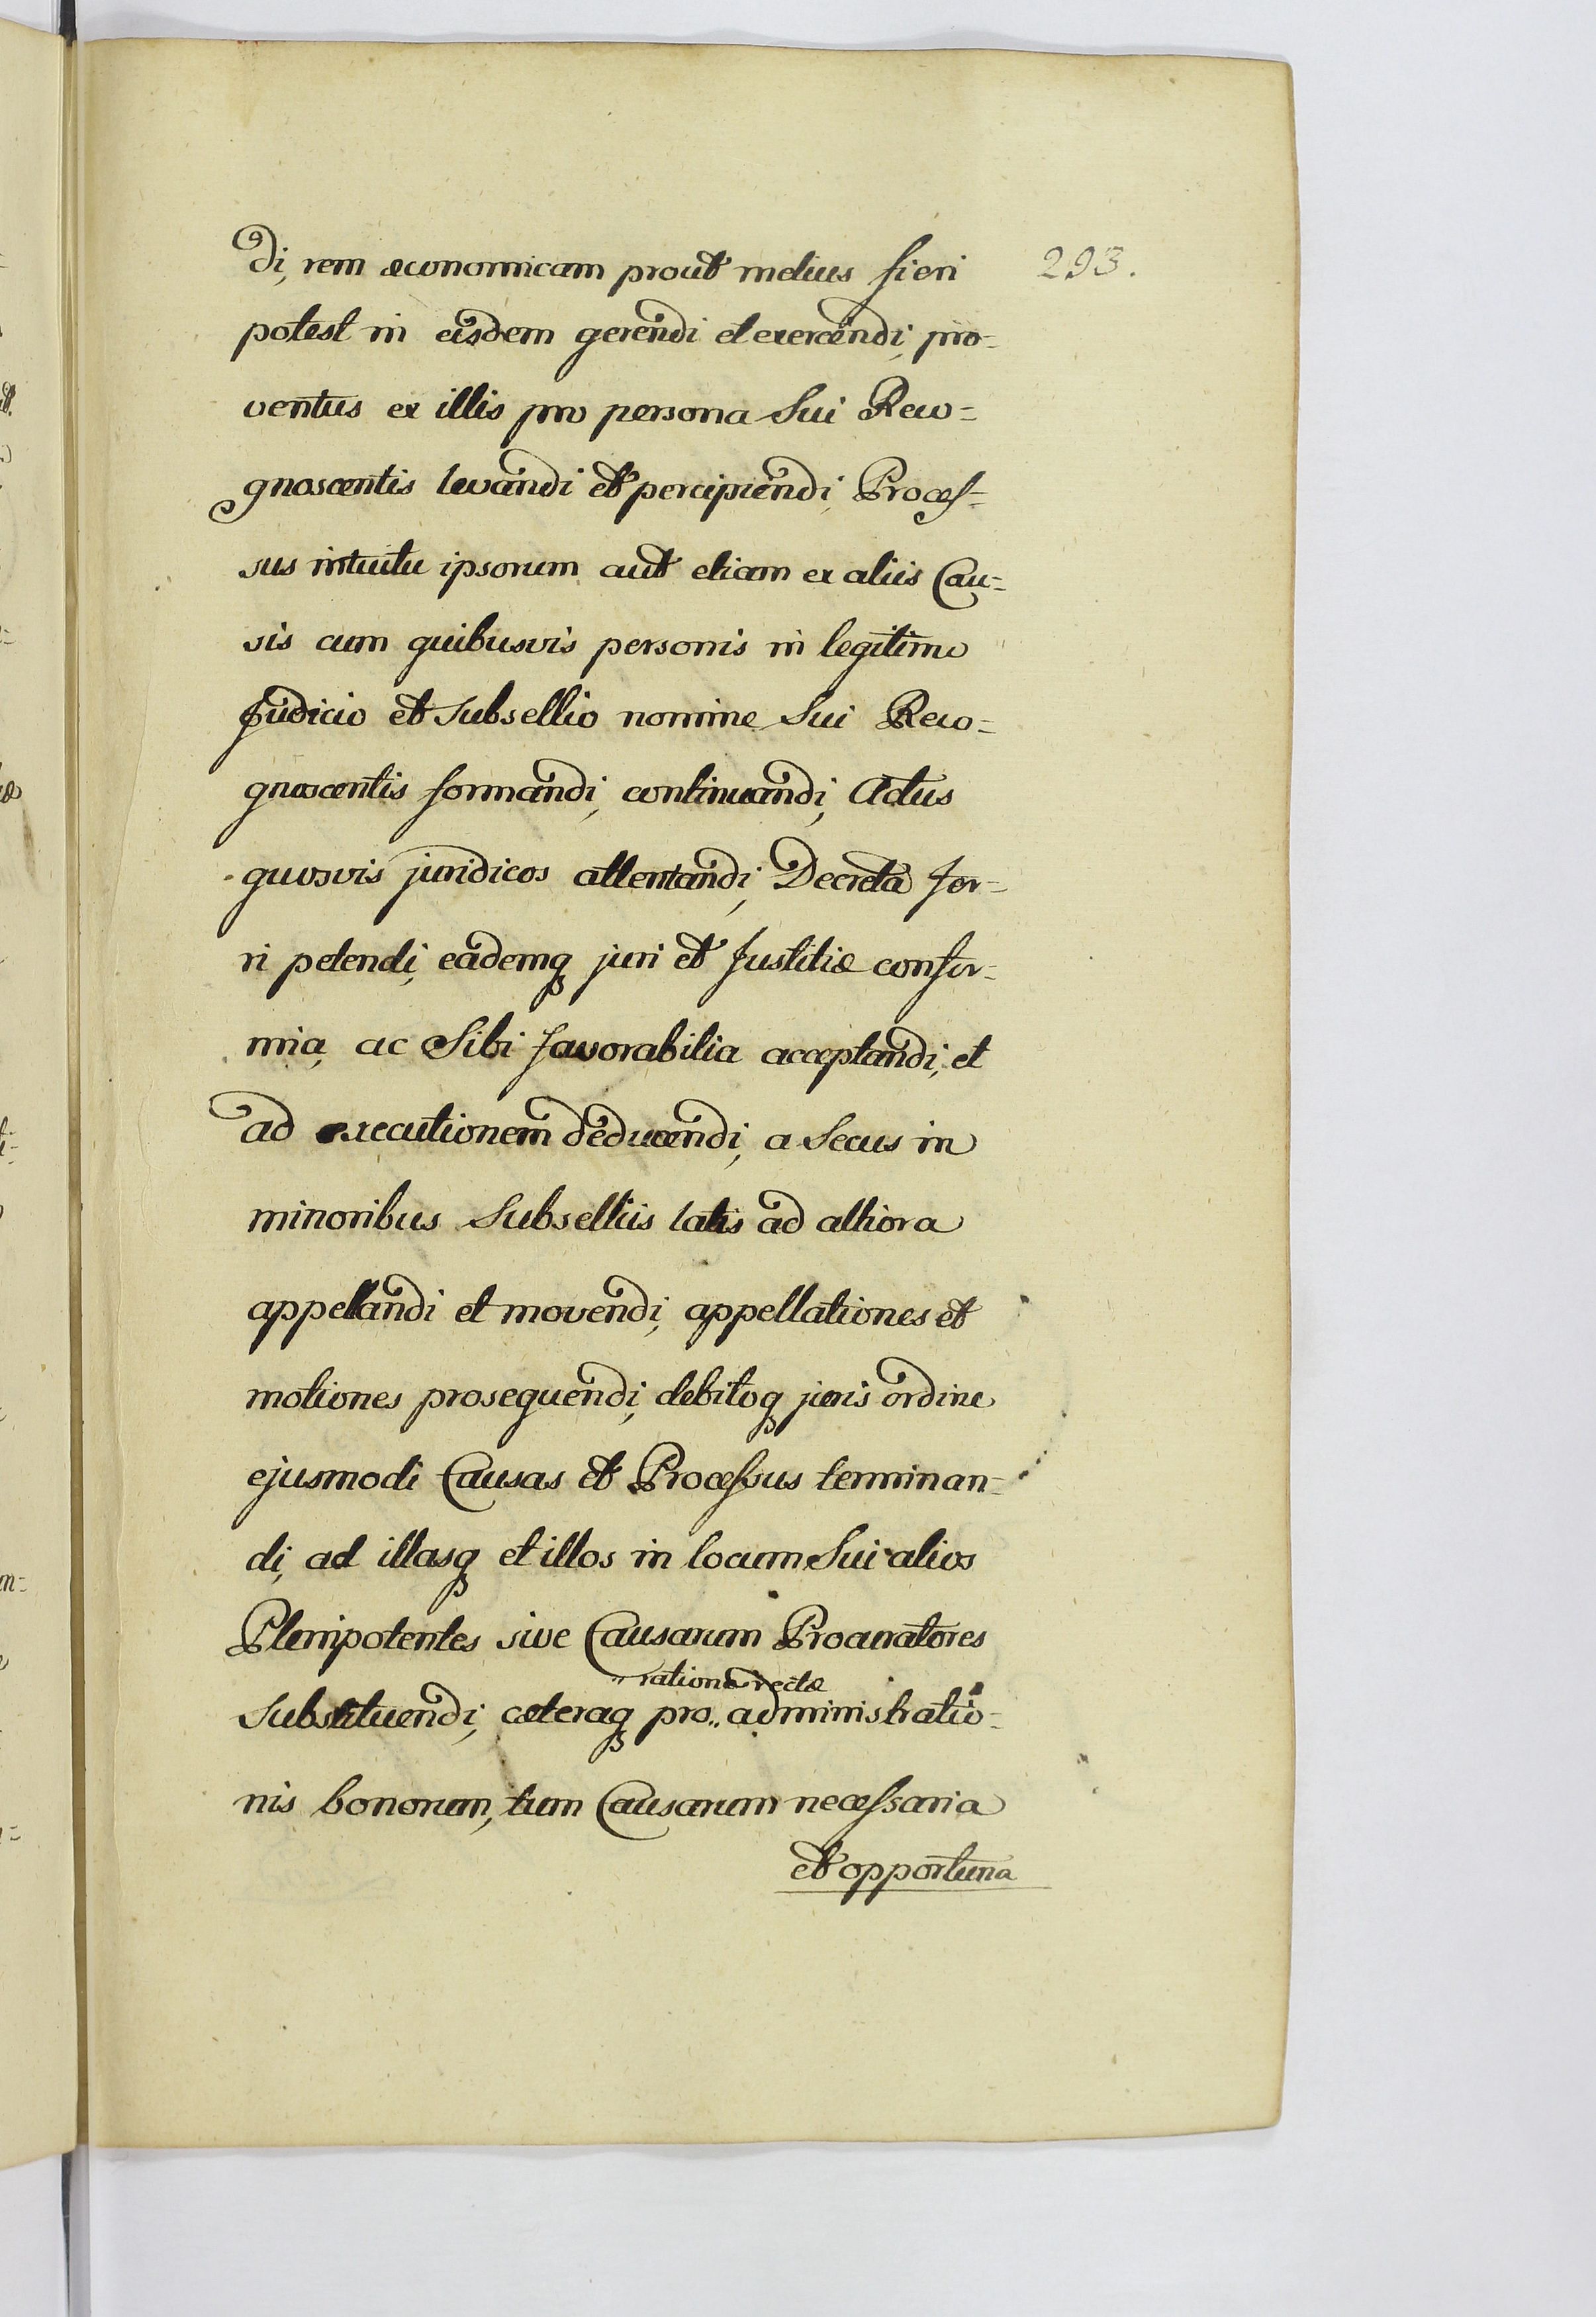 di, rem œconomicam prout melius fieri
293.
potest in eisdem gerendi et exercendi, pro-
ventus ex illis pro persona Sui Reco=
gnoscentis levandi et percipiendi, Proceſ=
sus intuitu ipsorum aut etiam ex aliis Cau=
sis cum quibusvis personis in legitimo
Judicio et Subsellio nomine Sui Reco=
gnoscentis formandi, continuandi, Actus
quosvis juridicos attentandi, Decreta fer=
ri petendi, eademq juri et Justitiæ confor=
mia, ac Sibi favorabilia acceptandi, et
ad executionem deducendi, a Secus in
minoribus Subselliis latis ad altiora
appellandi et movendi, appellationes et
motiones prosequendi, debitoq juris ordine
ejusmodi Causas et Proceſsus terminan=
di, ad illasq et illos in locum Sui alios
Plenipotentes sive Causarum Procuratores
ratione rectæ
Substituendi, cæteraq pro administratio=
nis bonorum, tum Causarum neceſsaria
et opportuna